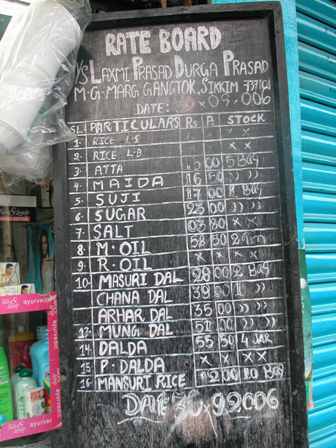 RATE BOARD
M/S LAXMI PRASAD DURGA PRASAD
M.G. MARG GANGTOK, SIKKIM 737101
DATE:
SL. PARTICULARS Rs A STOCK
1- RICE x x
2. RICE L-B x
3. ATTA 00 15 BAG
4- MAIDA 16 50 )) ))
5. SUJI 17 00 BAG
6. SUGAR 23 00 )) ))
7. SALT x x
8 M. OIL 58 50
9 R. OIL x x
10. MASURI DAL 28 00 2 BAG
CHANA DAL 39 )) ))
ARHAR DAL 35 00 )) ))
MUNG DAL 51 00 )) ))
14. DALDA 55 50 4 JAR
15 P. DALDA x x x x
16 MANSURI RICE 00 BAG
DATE